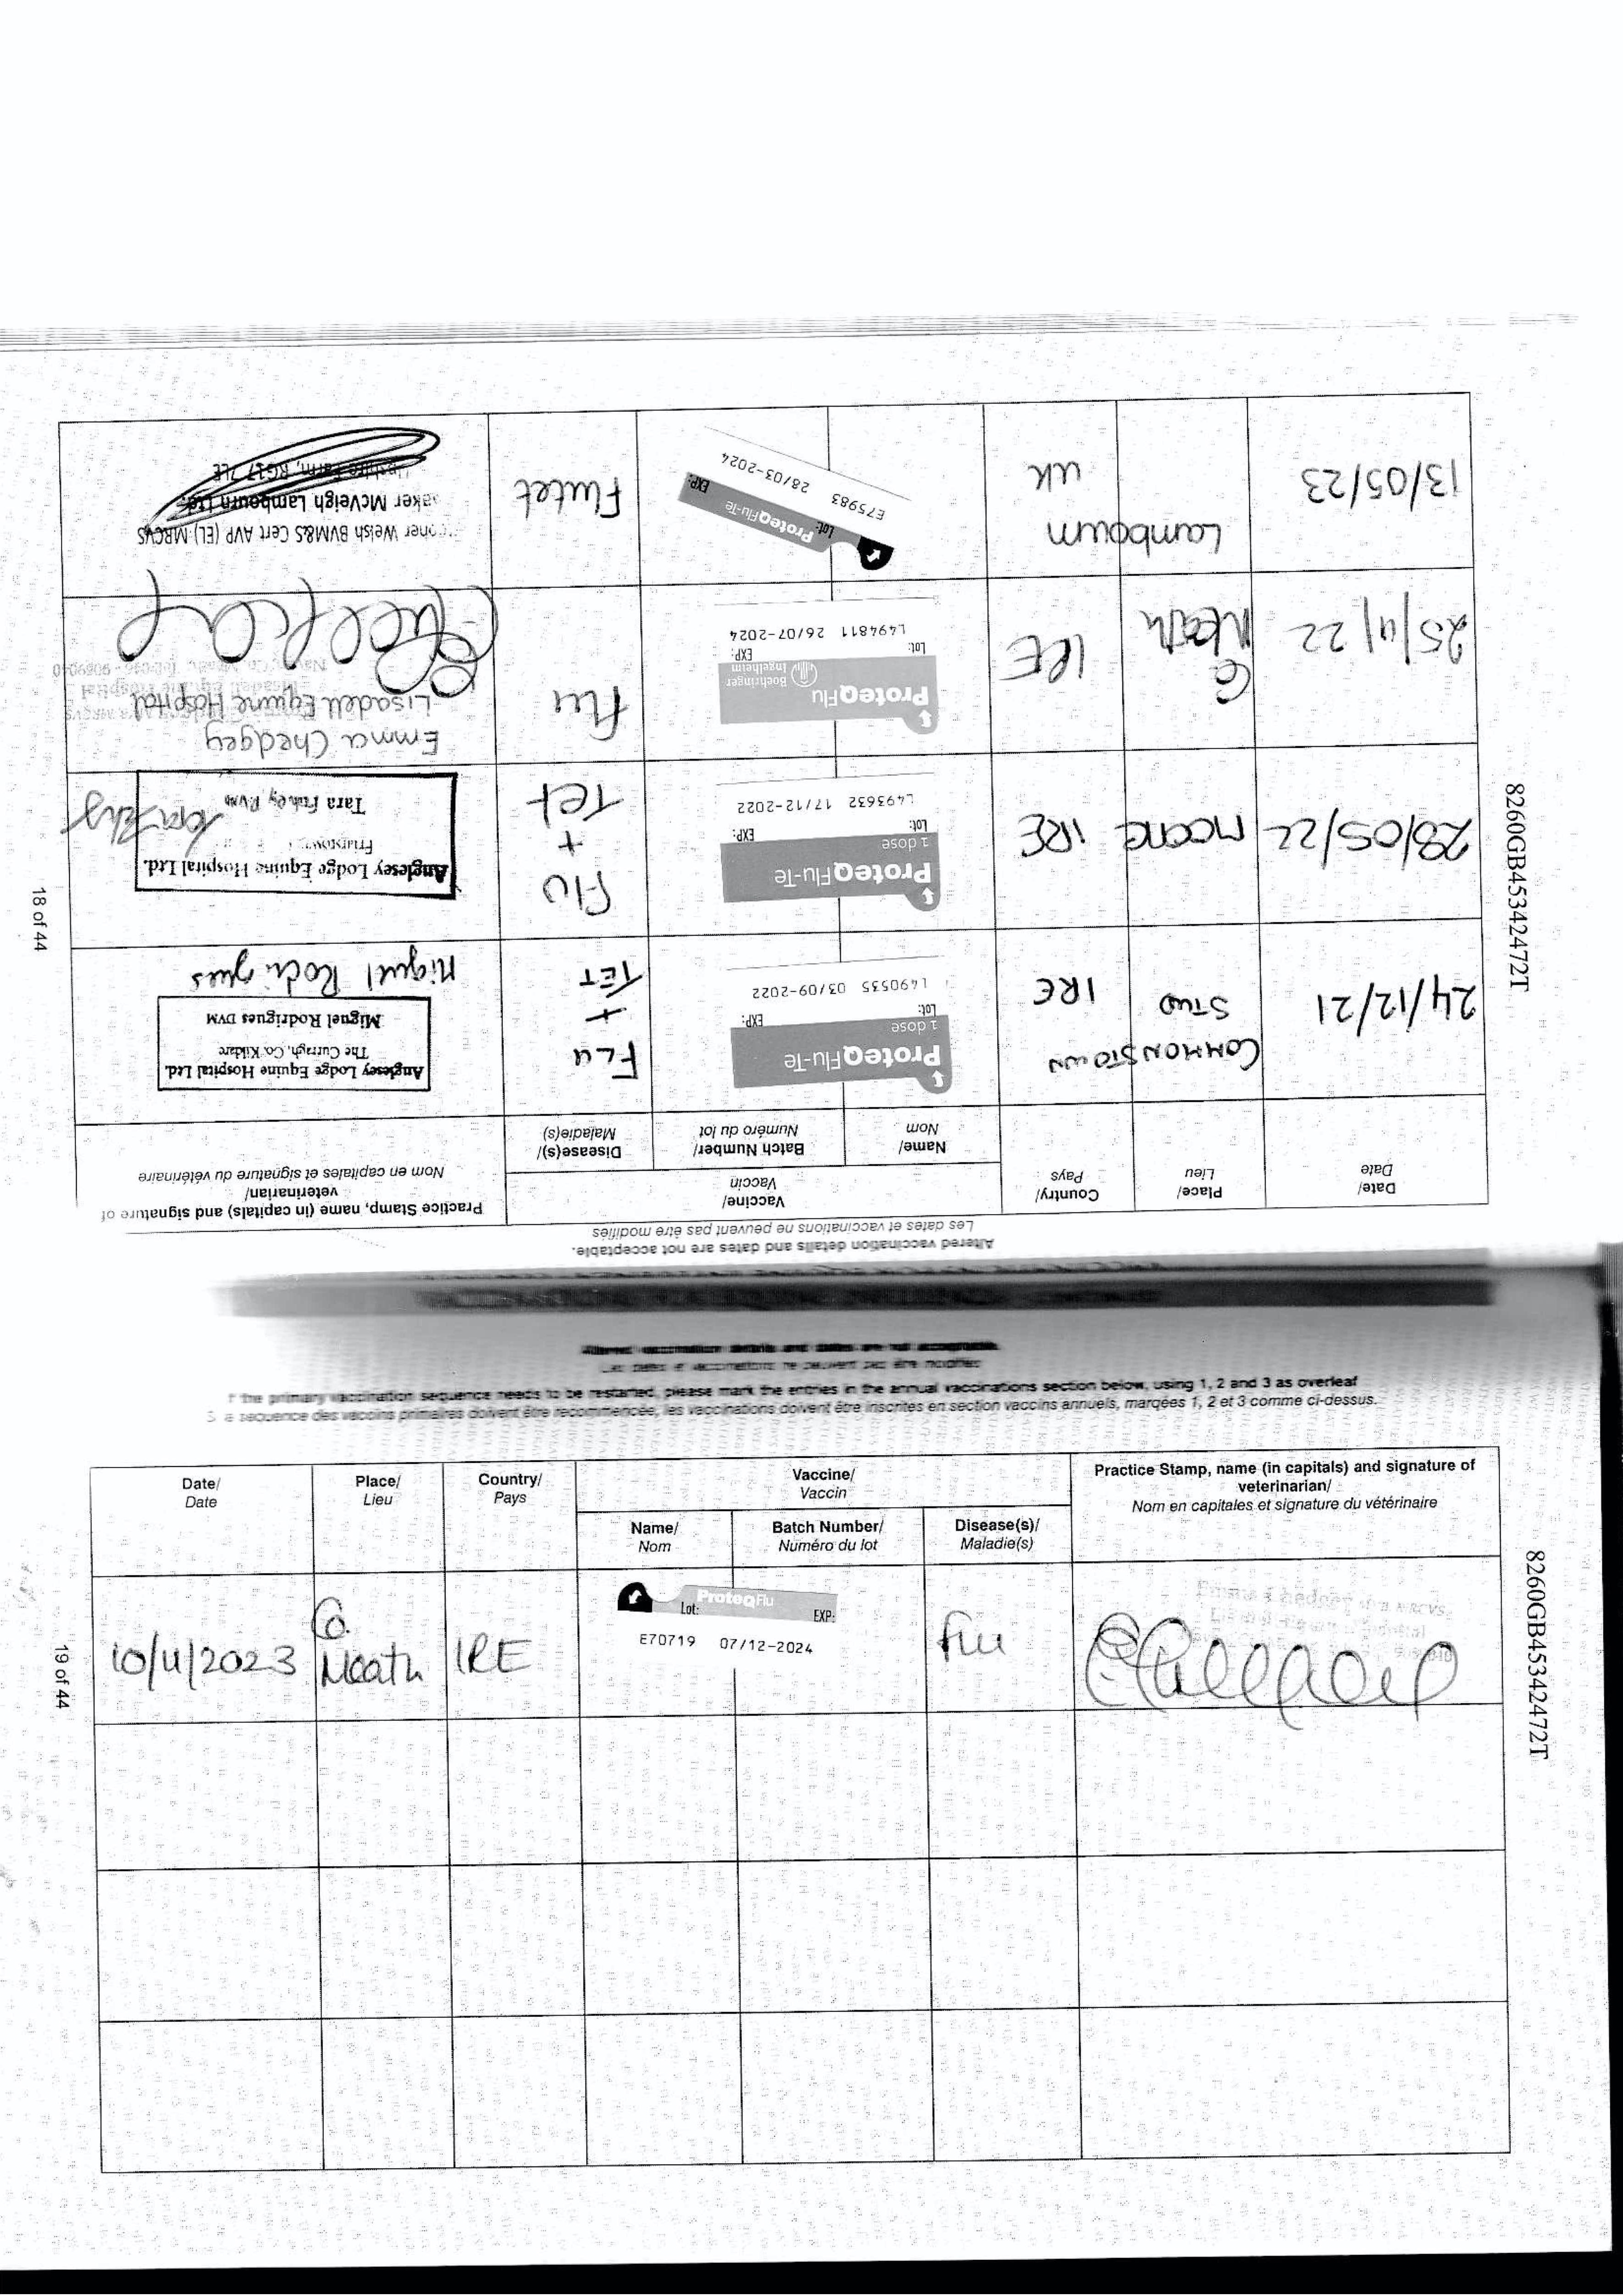 Altered vaccination details and dates are not acceptable.
Les dates et vaccinations ne peuvent pas être modifiés
Date/
Date
Place/
Lieu
Country/
Pays
Vaccine/
Vaccin
Name/
Nom
Batch Number/
Numéro du lot
Disease(s)/
Maladie(s)
Practice Stamp, name (in capitals) and signature of
veterinarian/
Nom en capitales et signature du vétérinaire
24/12/21
COMMONSTOWN
STUD
IRE
ProteqFlu-Te
1 dose
Lot:
EXP:
L490535 03/09-2022
FLU
+
TET
Anglesey Lodge Equine Hospital Ltd.
The Curragh, Co. Kildare
Miguel Rodrigues DVM
Miguel Rodrigues
28/05/22
MOONE
IRE
ProteqFlu-Te
1 dose
Lot:
EXP:
L493632 17/12-2022
Flu
+
Tet
Anglesey Lodge Equine Hospital Ltd.
Tara Fahey
25/11/22
Co
Meath
IRE
ProteqFlu
Boehringer
Ingelheim
Lot:
EXP:
L494811 26/07-2024
Flu
Emma Chedgey
Lisadell Equine Hospital
13/05/23
Lambourn
UK
ProteqFlu-Te
Lot:
EXP:
E75983 28/03-2024
Flutet
Welsh BVM&S Cert AVP (EL) MRCVS
McVeigh Lambourn Ltd
Farm, RG17 7LE
8260GB45342472T
18 of 44
Altered vaccination details and dates are not acceptable.
Les dates et vaccinations ne peuvent pas être modifiés
the primary vaccination sequence needs to be restarted, please mark the entries in the annual vaccinations section below, using 1, 2 and 3 as overleaf
séquence des vaccins primaires doivent être recommencée, les vaccinations doivent être inscrites en section vaccins annuels, marqées 1, 2 et 3 comme ci-dessus.
Date/
Date
Place/
Lieu
Country/
Pays
Vaccine/
Vaccin
Name/
Nom
Batch Number/
Numéro du lot
Disease(s)/
Maladie(s)
Practice Stamp, name (in capitals) and signature of
veterinarian/
Nom en capitales et signature du vétérinaire
10/11/2023
Co.
Meath
IRE
ProteqFlu
Lot:
EXP:
E70719 07/12-2024
Flu
8260GB45342472T
19 of 44